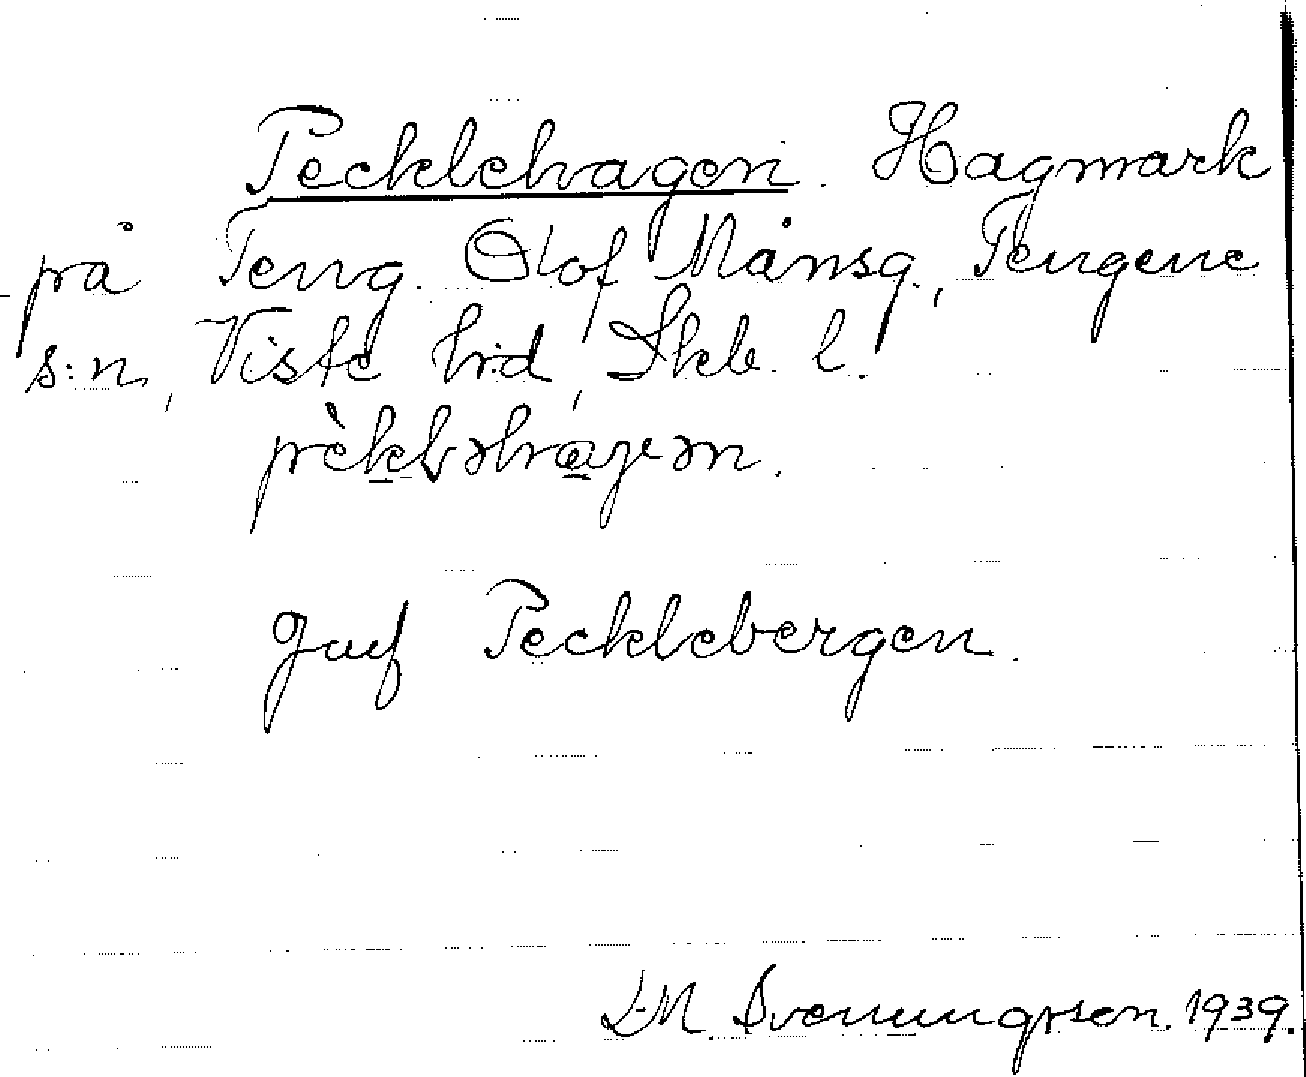 Pecklehagen. Hagmark
på Teng. Olof Månsg., Tengene
s:n, Viste hd, Skb. l.
pèkləhàgən.
Jmf Pecklebergen.
D.M. Svenungsson. 1939.